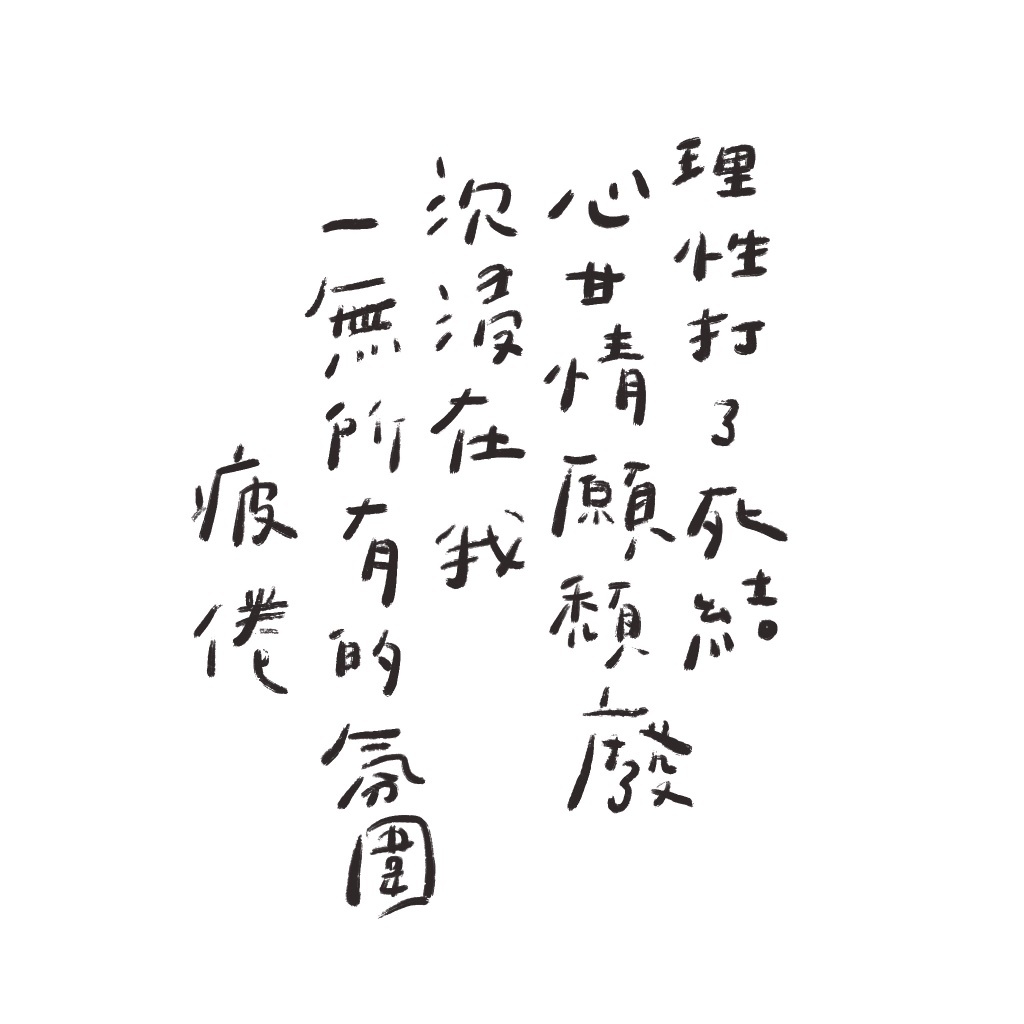 理性打了死結
心甘情願頹廢
沉浸在我
一無所有的氛圍
疲倦